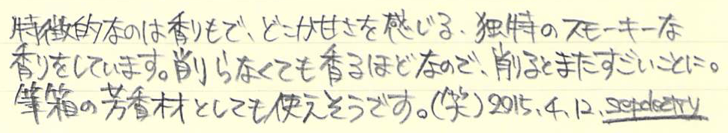 特徴的なのは香りもで、どこか甘さを感じる、独特のスモーキーな
香りをしています。削らなくても香るほどなので、削るとまたすごいことに。
筆箱の芳香材としても使えそうです。(笑) 2015.4.12.